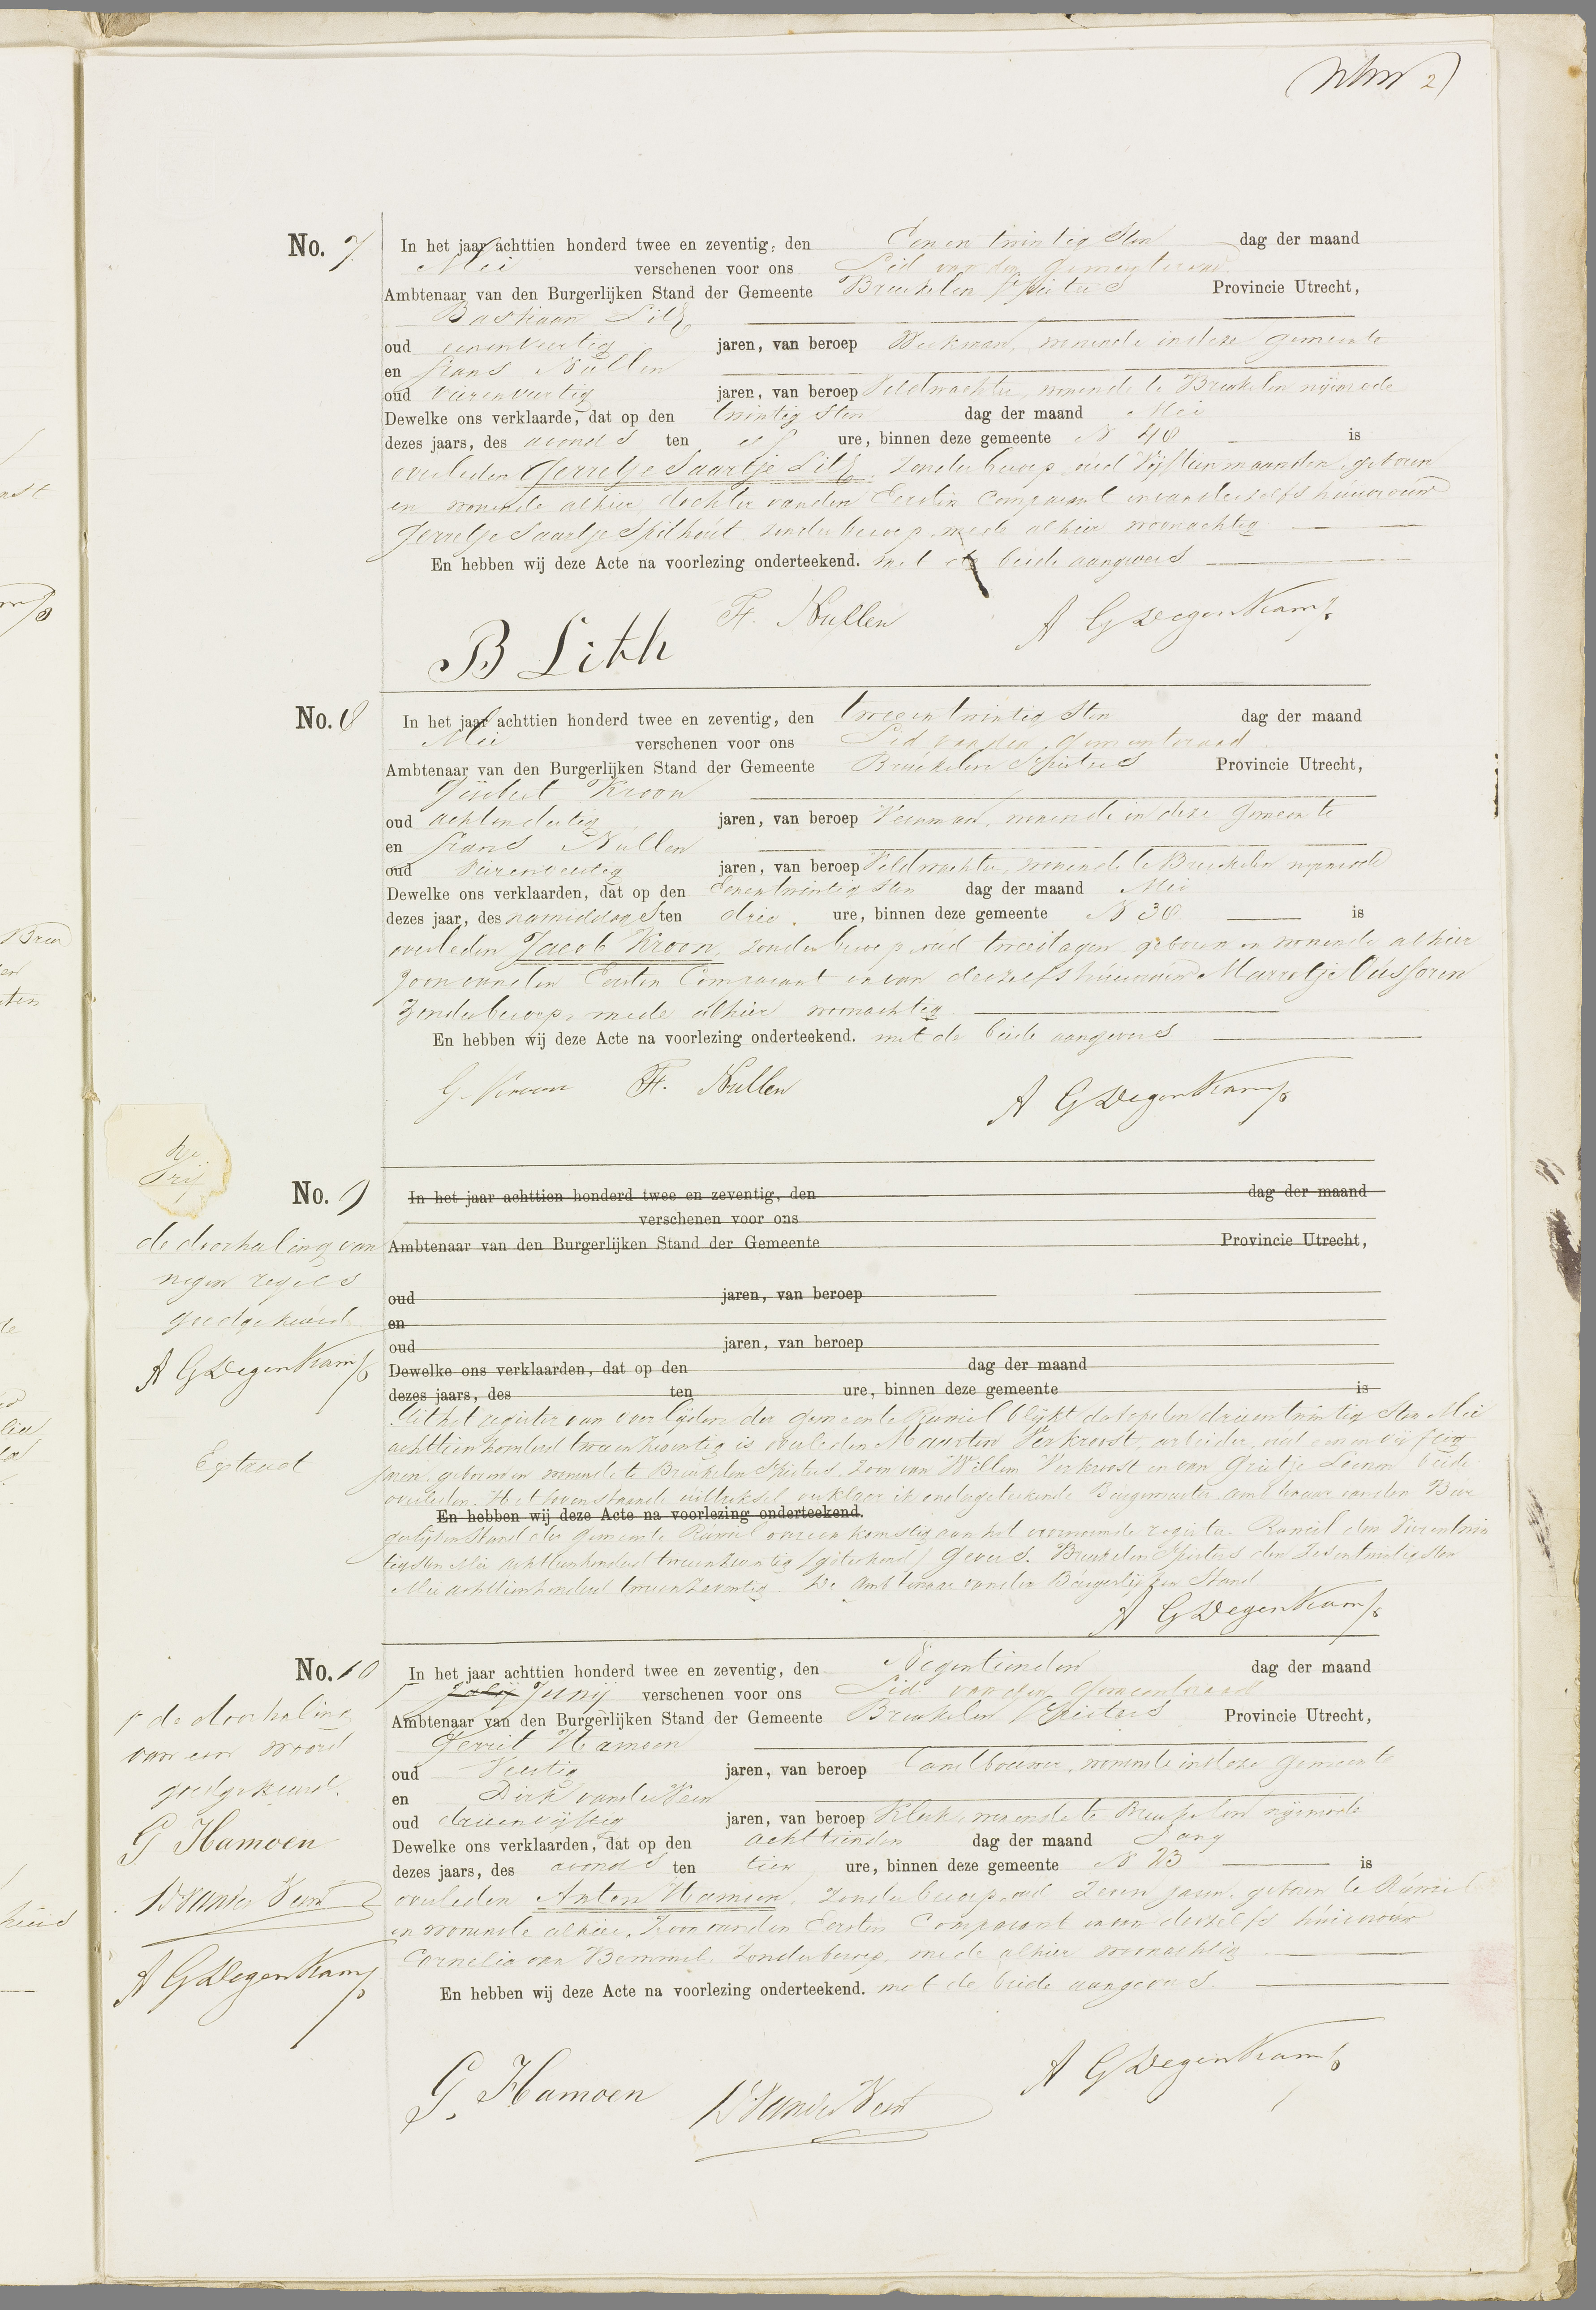 2
No. 7
In het jaar achttien honderd twee en zeventig, den Eenen twintig sten dag der maand
Mei verschenen voor ons Lid van den Gemeenteraad
Ambtenaar van den Burgerlijken Stand der Gemeente Breukelen St Pieters Provincie Utrecht,
Bastiaan Lith
oud eenenveertig jaren, van beroep Werkman, wonende in deze gemeente
en Frans Nullen
oud vierenveertig jaren, van beroep Veldwachter, wonende te Breukelen nijenrode
Dewelke ons verklaarde, dat op den twintig sten dag der maand Mei
dezes jaars, des avonds ten elf ure, binnen deze gemeente N 40 is
overleden Gerretje Saartje Lith, zonder beroep, oud Vijftien maanden, geboren
en wonende alhier, dochter van den Eersten Comparant en van deszelfs huisvrouw
Gerretje Saartje Spilhout zonder beroep, mede alhier woonachtig
En hebben wij deze Acte na voorlezing onderteekend. met de beide aangevers
B Lith F. Nullen A G Degenkamp
No. 8
In het jaar achttien honderd twee en zeventig, den tweeen twintig sten dag der maand
Mei verschenen voor ons Lid van den Gemeenteraad
Ambtenaar van den Burgerlijken Stand der Gemeente Breukelen St Pieters Provincie Utrecht,
Gijsbert Kroon
oud achtendertig jaren, van beroep Veenman, wonende in deze Gemeente
en Frans Nullen
oud Vierenveertig jaren, van beroep Veldwachter, wonende te Breukelen nijenrode
Dewelke ons verklaarden, dat op den Eenentwintig sten dag der maand Mei
dezes jaar, des namiddags ten drie ure, binnen deze gemeente N 30 is
overleden Jacob Kroon, zonder beroep, oud twee dagen, geboren en wonende alhier
Zoon van den Eersten Comparant en van deszelfs huisvrouw Marretje
Zonder beroep, mede alhier woonachtig
En hebben wij deze Acte na voorlezing onderteekend. met de beide aangevers
G. Kroon F. Nullen A G Degenkamp
No. 9
In het jaar achttien honderd twee en zeventig, den dag der maand
verschenen voor ons
Ambtenaar van den Burgerlijken Stand der Gemeente Provincie Utrecht,
oud jaren, van beroep
en
oud jaren, van beroep
Dewelke ons verklaarden, dat op den dag der maand
dezes jaars, des ten ure, binnen deze gemeente is
de doorhaling van
negen regels
goedgekeurd.
A G Degenkamp
Extract
Uit het register van overlijden der gemeente Ruwiel blijkt dat op den drieentwintig sten Mei
achttienhonderd tweeenzeventig is overleden Maarten Verkroost, arbeider, oud eenenvijftig
jaren, geboren en wonende te Breukelen St Pieters, Zoon van Willem Verkroost en van Grietje beide
overleden. Het bovenstaande uittreksel verklaar ik ondergeteekende Burgemeester ambtenaar van den Bur
En hebben wij deze Acte na voorlezing onderteekend.
gerlijken Stand der Gemeente Ruwiel overeenkomstig aan het voornoemde register Ruwiel den Vierentwin
tigsten Mei achttienhonderd tweeenzeventig (geteekend) Gevers. Breukelen St Pieters den Zesentwintigsten
Mei achttienhonderd tweeenzeventig. De Ambtenaar van den Burgerlijken Stand
A G Degenkamp
No. 10
In het jaar achttien honderd twee en zeventig, den Negentienden dag der maand
July Junij verschenen voor ons Lid van den Gemeenteraad
Ambtenaar van den Burgerlijken Stand der Gemeente Breukelen St Pieters Provincie Utrecht,
Gerrit Hamoen
oud Veertig jaren, van beroep landbouwer, wonende in deze Gemeente
en Dirk van der Veen
oud drieenvijftig jaren, van beroep Klerk, wonende te Breukelen nijenrode
Dewelke ons verklaarden, dat op den achttienden dag der maand Juny
dezes jaars, des avonds ten tien ure, binnen deze gemeente N 23 is
overleden Anton Hamoen, Zonder beroep, oud Zeven jaren, geboren te Ruwiel
en wonende alhier, Zoon van den Eersten Comparant en van deszelfs huisvrouw
Cornelia van Bemmel, Zonder beroep, mede alhier woonachtig
En hebben wij deze Acte na voorlezing onderteekend. met de beide aangevers
de doorhaling
van een woord
goedgekeurd.
G Hamoen
D van der Veen
A G Degenkamp
G. Hamoen D van der Veen A G Degenkamp